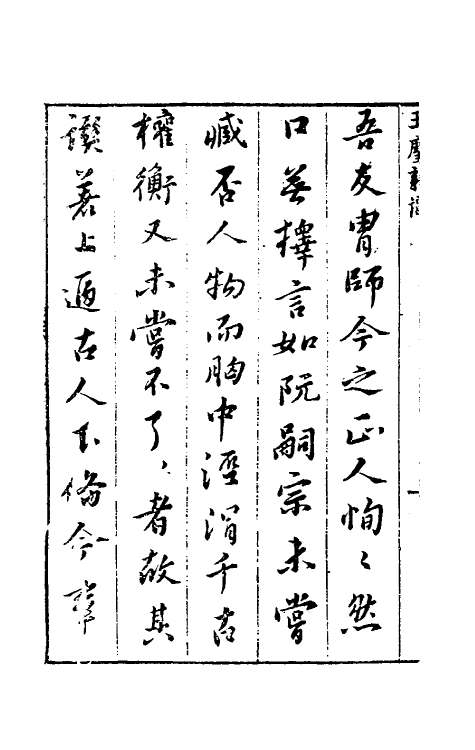 吾友胄師今之正人恂〻然
口無擇言如阮嗣宗未嘗
臧否人物而胸中涇渭千古
權衡又未嘗不了〻者故其
譔著上遡古人下脩今